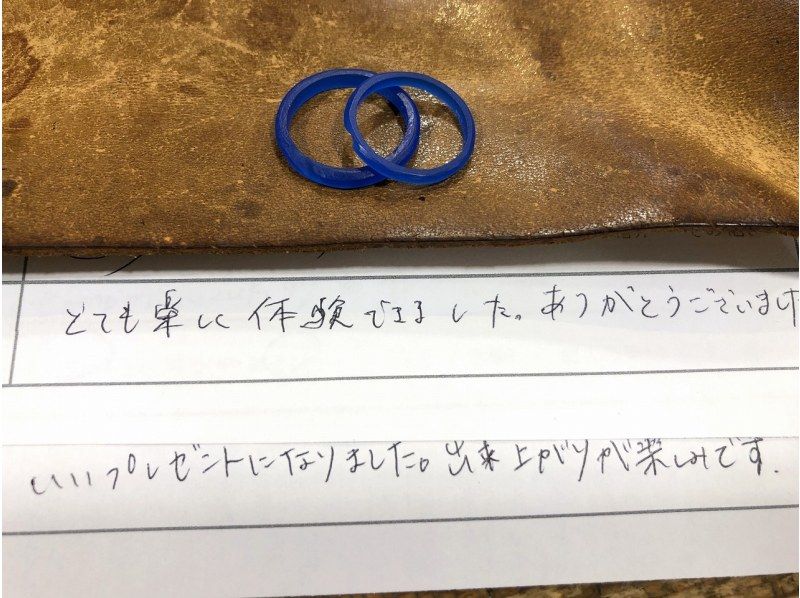 とても楽しく体験できました。ありがとうございました
いいプレゼントになりました。出来上がりが楽しみです.